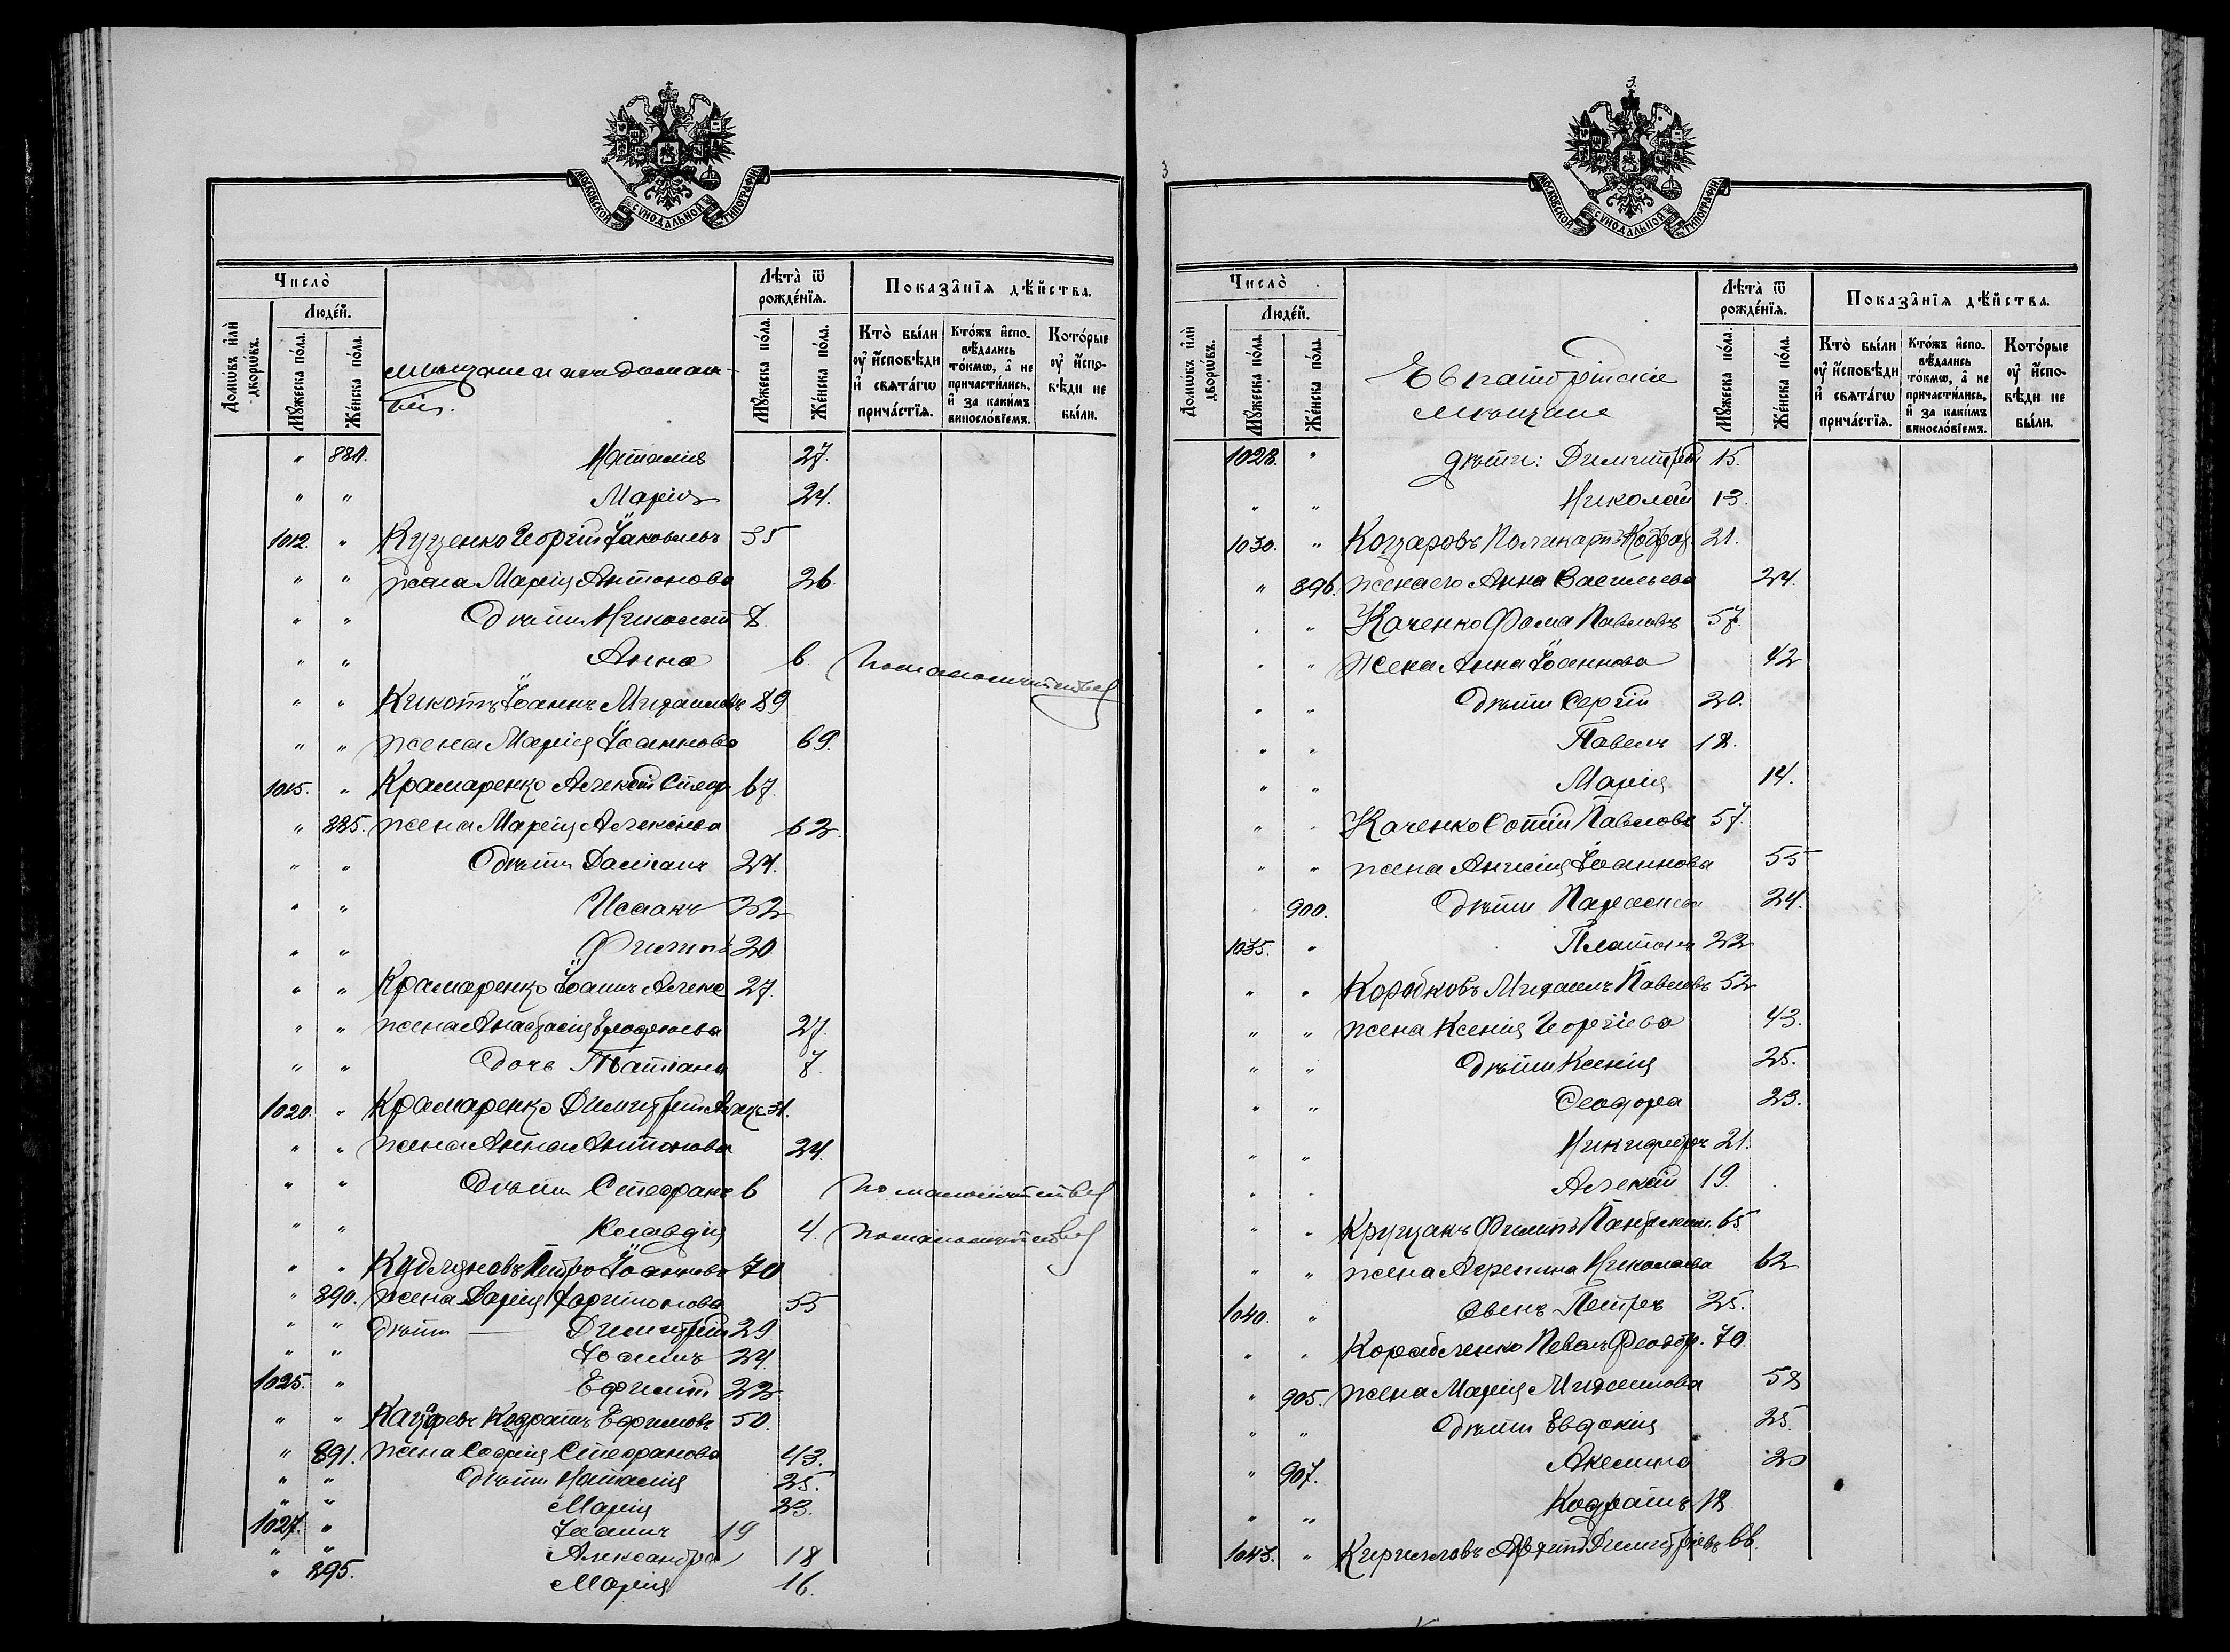 МОСКОВСКОЙ СѴНОДАЛЬНОЙ ТИПОГРАФІИ
Число̀
Людéй.
Домѡ́въ и҆лѝ дворѡ́въ.
Мꙋ́жеска по́ла.
Же́нска по́ла.
Лѣ́та ѿ рожде́нїѧ.
Мꙋ́жеска по́ла.
Же́нска по́ла.
Показа̂нїѧ дѣ́йства.
Кто̀ бы́ли оу҆ и҆́сповѣди и҆ свѧта́гѡ прича́стїѧ.
Кто́жъ и҆спо-вѣ́дались то́кмѡ, а҆ не причасти́лись, и҆ за каки́мъ винословїемъ.
Кото́рые оу҆ и҆́спо-вѣди не бы́ли.
мѣщане и ихъ домаш-
ніе.
" 880. Наталія 27.
" " Марія 24.
1012. " Куценко Георгій Іаковлевъ 35
" " жена Марія Антонова 26.
" " дѣти Николай 8.
" " Анна 6. по малолѣтству
" " Кикоть Іоаннъ Михаиловъ 89
" " жена Марія Іоаннова 69.
1015. " Крамаренко Алексій Стеф 67.
" 885. жена Марія Алексіева 62.
" " дѣти Даміанъ 24.
" " Исаакъ 22
" " Филипъ 20
" " Крамаренко Іоаннъ Алекс 27.
" " жена Анастасія 27.
" " дочь Татіана 7.
1020. " Крамаренко Димитрій Алекс 31.
" " жена Анна Антонова 24.
" " дѣти Стефанъ 6 по малолѣтству
" " Клавдія 4. по малолѣтству
" " Петръ Іоанновъ 70
" 890. жена Дарія Харитонова 55
" " дѣти — Димитрій 29
" " Іоаннъ 24.
1025. " Ефимій 22
" " Кодратъ Ефимовъ 50.
" 891. жена Софія Стефанова 43.
" " дѣти Наталія 25.
" " Марія 23.
1027. " Іоаннъ 19
" " Александра 18
" 895. Марія 16.
3.
3
МОСКОВСКОЙ СѴНОДАЛЬНОЙ ТИПОГРАФІИ
Число̀
Людéй.
Домѡ́въ и҆лѝ дворѡ́въ.
Мꙋ́жеска по́ла.
Же́нска по́ла.
Лѣ́та ѿ рожде́нїѧ.
Мꙋ́жеска по́ла.
Же́нска по́ла.
Показа̂нїѧ дѣ́йства.
Кто̀ бы́ли оу҆ и҆́сповѣди и҆ свѧта́гѡ прича́стїѧ.
Кто́жъ и҆спо-вѣ́дались то́кмѡ, а҆ не причасти́лись, и҆ за каки́мъ винословїемъ.
Кото́рые оу҆ и҆́спо-вѣди не бы́ли.
Евпаторійскіе
мѣщане
1028. " дѣти: Димитрій 15.
" " Николай 13
1030. " Коцаровъ Поликарпъ Кодрат 21.
" 896. жена его Анна Васильева 24.
" " Каченко Фома Павловъ 57.
" " жена Анна Іоаннова 42
" " дѣти Сергій 20.
" " Павелъ 18.
" " Марія 14.
" " Каченко Фотій Павловъ 57.
" " жена Анисія Іоаннова 55
" 900. дѣти 24.
1035. " Платонъ 22
" " Коробковъ Михаилъ Павловъ 52
" " жена Ксенія Георгіева 43.
" " дѣти Ксенія 25.
" " Феодора 23.
" " Никифоръ 21.
" " Алексій 19.
" " Филипъ 65
" " жена Агрепина Николаева 62
1040. " сынъ Петръ 25.
" " Корабленко Павелъ Феодор. 70.
" 905. жена Марія Михаилова 58
" " дѣти Евдокія 25.
" 907. Акелина 20
" " Кодратъ 18
1043. " Кирилловъ Димитріевъ 66.